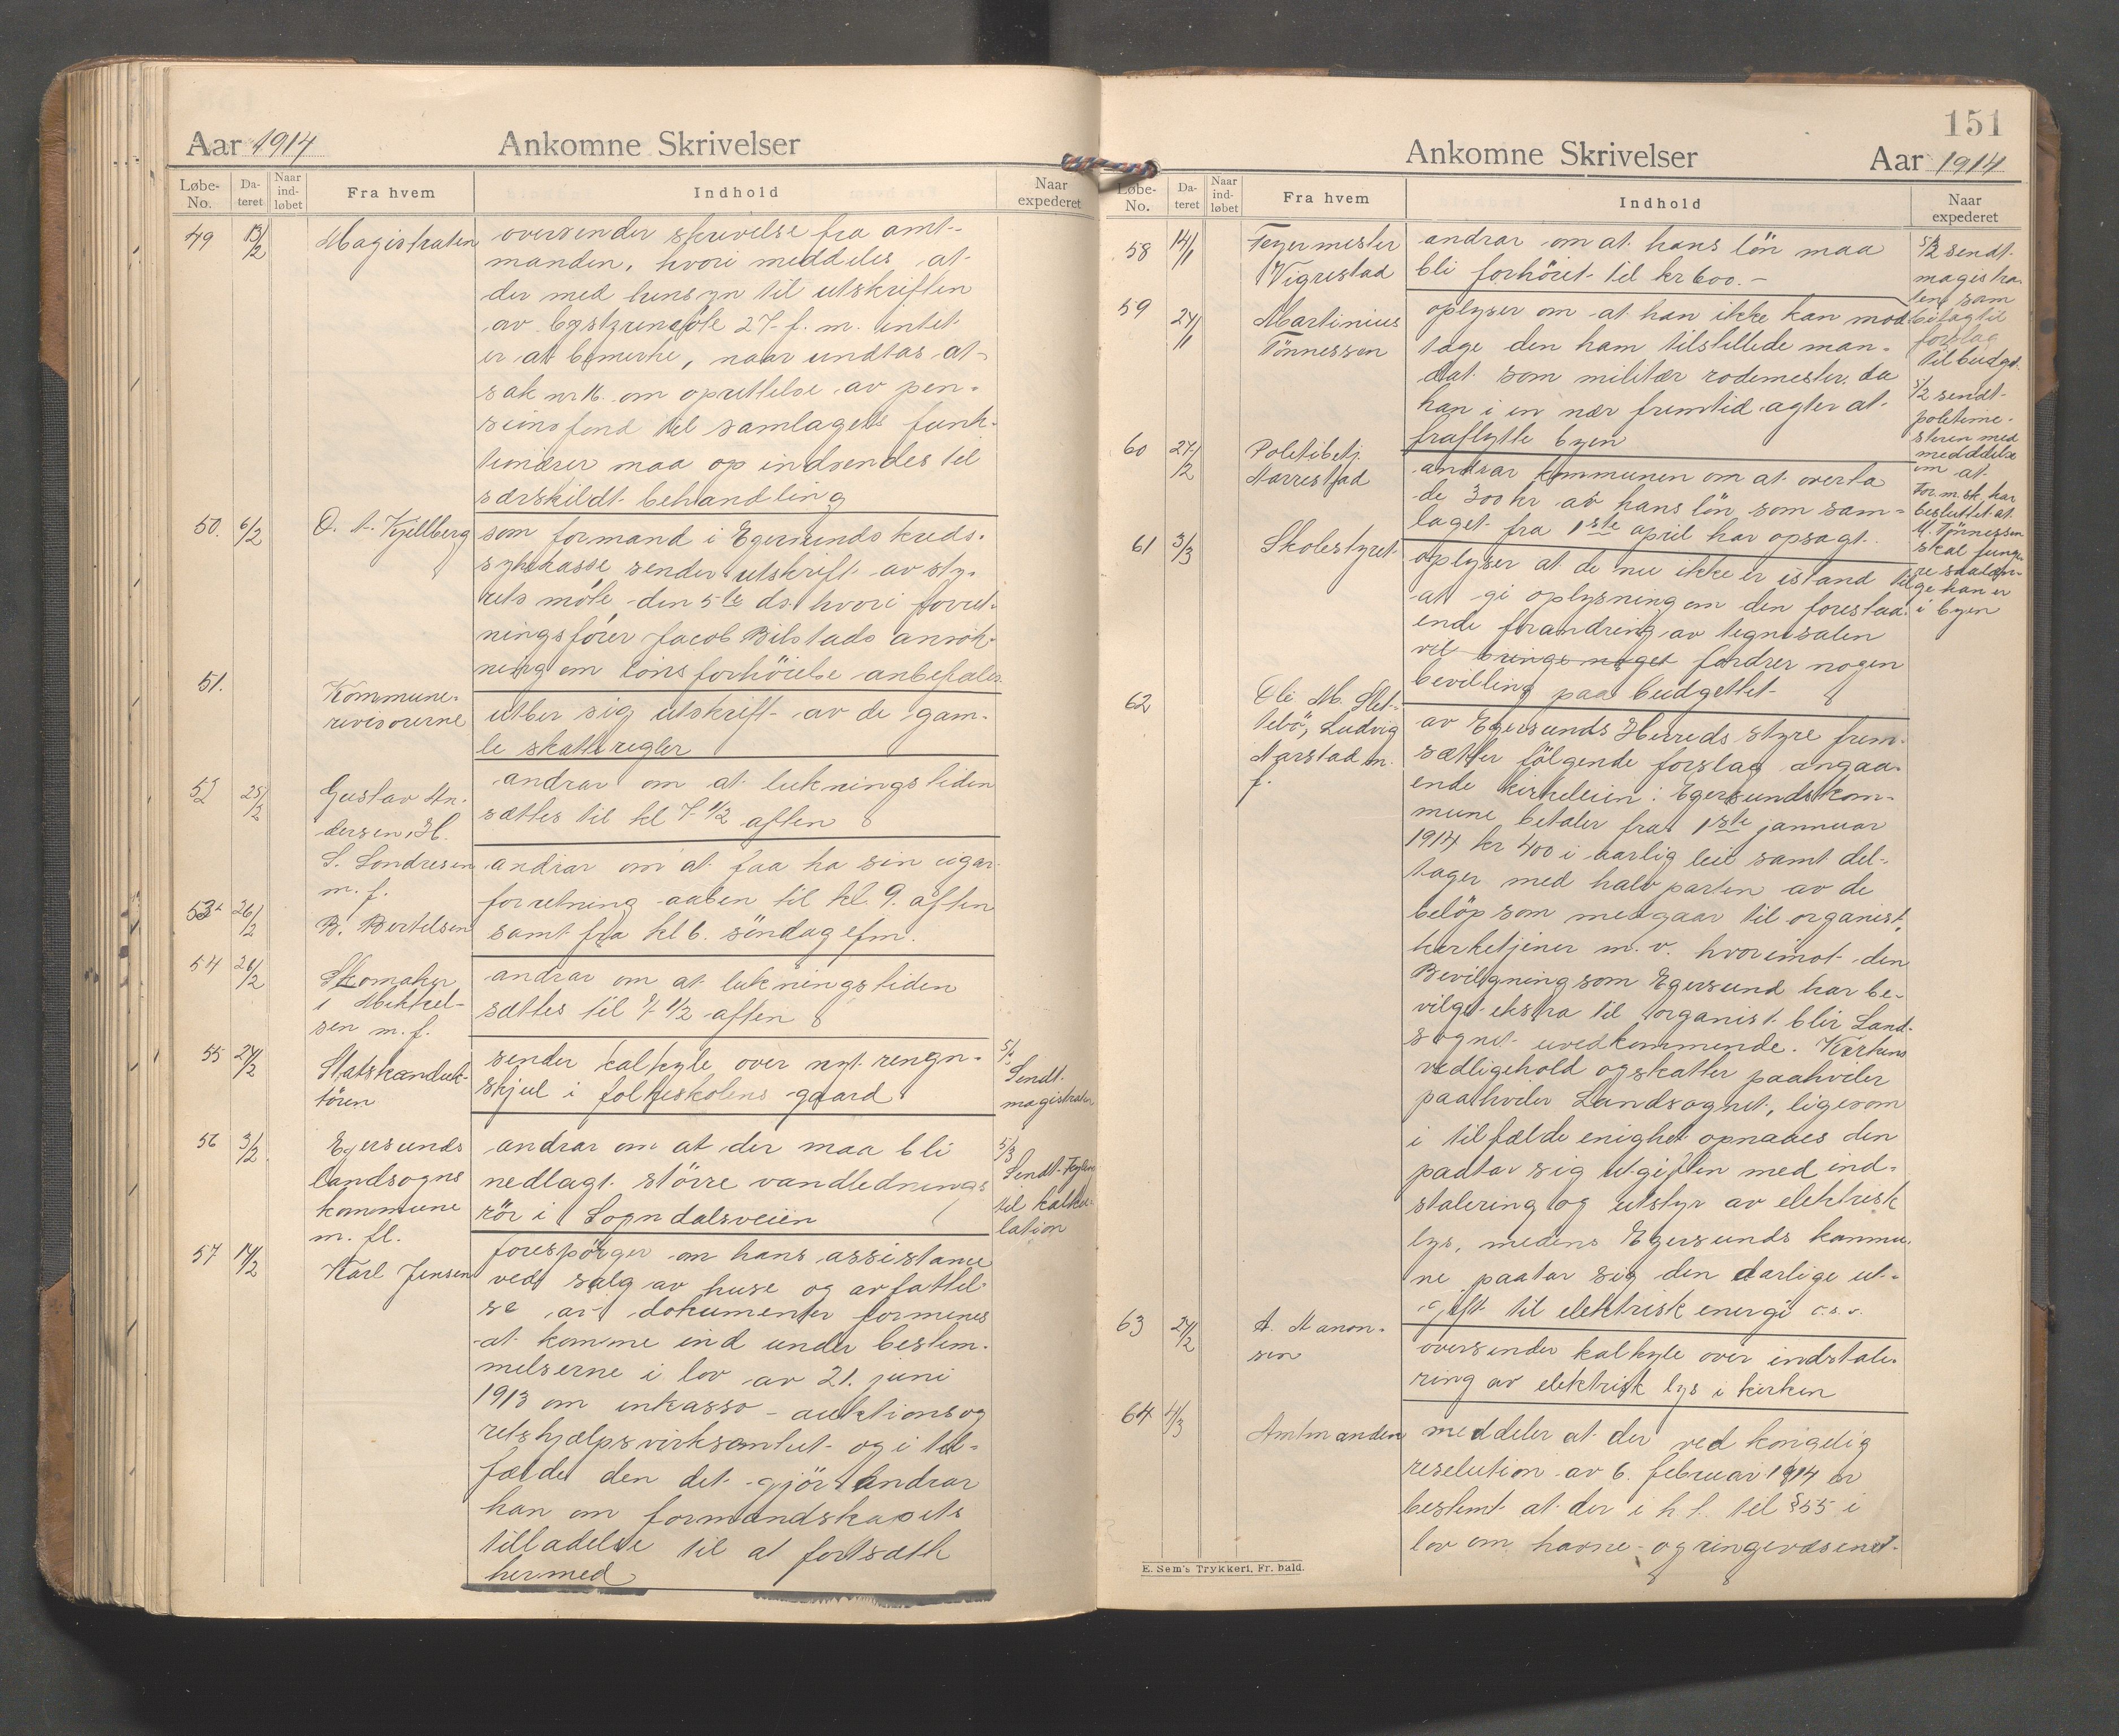 Aar 1914 Ankomne Skrivelser
Løbe-No. Dateret Naar indløbet Fra hvem Indhold Naar expederet
49 13/2 Magistraten oversender skrivelse fra amt-
manden, hvori meddeles at
der med hensyn til utskriften
av bystyremøte 27 f. m. intet
er at bemerke, naar undtas at
sak nr 16. om oprettelse av pen-
sionsfond til samlagets funk-
tionærer maa op indsendes til
særskildt behandling
50. 6/2 O. A. Kjellberg som formand i Egersunds kreds-
sykekasse sender utskrift av sty-
rets møte den 5te ds. hvori forret-
ningsfører Jacob Bilstads ansøk-
ning om lønsforhøielse anbefales
51. Kommune-
revisorerne utber sig utskrift av de gam-
le skatteregler
52 25/2 Gustav An-
dersen, H.
S. Sondresen
m. f.
andrar om at lukningstiden
sættes til kl 7 1/2 aften
53 26/2 B. Bertelsen
andrar om at faa ha sin cigar-
forretning aaben til kl. 9. aften
samt fra kl 6. søndag efm.
54 26/2 Skomaker
i Mikkel-
sen m. f.
andrar om at lukningstiden
sættes til 7 1/2 aften
55 24/2 Statskonduk-
tøren
sender kalkyle over nyt rengn-
skjul i folkeskolens gaard
5/3 Sendt
magistraten
56 3/2 Egersunds
landsogns
kommune
m. fl.
andrar om at der maa bli
nedlagt større vandlednings
rør i Sogndalsveien
5/3
Sendt
til kalku-
lation
57 14/2 Karl Jensen
forespørger om hans assistance
ved salg av huse og avfattel-
se av dokumenter formenes
at komme ind under bestem-
melserne i lov av 21. juni
1913 om inkasso - auktions og
retshjælpsvirksomhet og i til-
fælde den det gjør andrar
han om formandskapets
tilladelse til at fortsætte
hermed
151
Ankomne Skrivelser Aar 1914
Løbe-No. Dateret Naar indløbet Fra hvem Indhold Naar expederet
58 14/1 Feyermester
Vigrestad
andrar om at hans løn maa
bli forhøiet til kr 600.-
5/3 sendt
magistra-
ten som
bilag til
forslag
til budget
59 24/1 Martinius
Tønnessen
oplyser om at han ikke kan mod-
tage den ham tilstillede man-
dat som militær rodemester, da
han i en nær fremtid agter at
fraflytte byen
5/2 sendt
politime-
steren med
medddelse
om at
For.m.sk. har
besluttet at
M. Tønnessen
skal funge-
re saalæn-
ge han er
i byen
60 27/2 Politibetj.
Aarrestad
andrar kommunen om at overta
de 300 kr av hans løn som sam-
laget fra 1ste april har opsagt.
61 3/3 Skolestyret
oplyser at de nu ikke er istand til
at gi oplysning om den forestaa-
ende forandring av tegnesalen
vil bringe noget fordrer nogen
bevilling paa budgettet
62 Ole M. Slet-
tebø, Ludvig
Aarstad m.
f.
av Egersunds Herreds styre frem-
sætter følgende forslag angaa-
ende kirkeleien: Egersunds kom-
mune betaler fra 1ste jannuar
1914 kr 400 i aarlig leie samt del-
tager med halvparten av de
beløp som medgaar til organist,
kirketjener m. v. hvorimot den
Bevilgning som Egersund har be-
vilget ekstra til organist blir Land-
sognet uvedkommende. Kirkens
vedligehold og skatter paahviler
paahviler Landsognet, ligesom
i tilfælde enighet opnaaes den
paatar sig utgiften med ind-
stalering og utstyr av elektrisk
lys, medens Egersunds kommu-
ne paatar sig den aarlige ut-
gift til elektrisk energi o.s.v.
63 24/2 A. Aanon-
sen
oversender kalkyle over indstale-
ring av elektrisk lys i kirken
64 4/3 Amtmanden
meddeler at der ved kongelig
reselution av 6. februar 1914 er
bestemt at der i h. t. til § 55 i
lov om havne- og ringevæsenet
E. Sem's Trykkeri, Fr. hald.